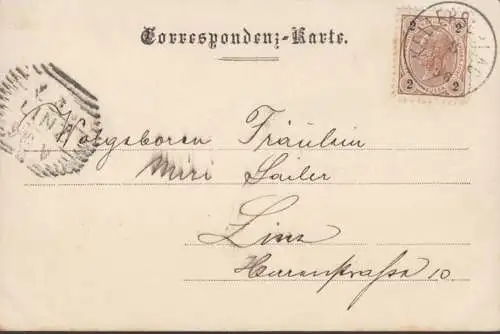 Correspondenz-Karte.
2 2
2 2
LINZ
Wohlgeboren Fräulein
Mizi Sailer
Linz
Herrenstraße 10